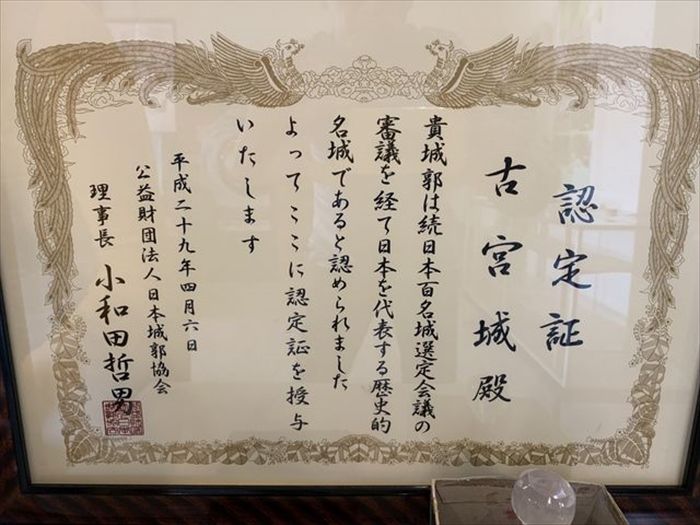 認定証
古宮城殿
貴城郭は続日本百名城選定会議の
審議を経て日本を代表する歴史的
名城であると認められました
よってここに認定証を授与
いたします
平成二十九年四月六日
公益財団法人日本城郭協会
理事長 小和田哲男